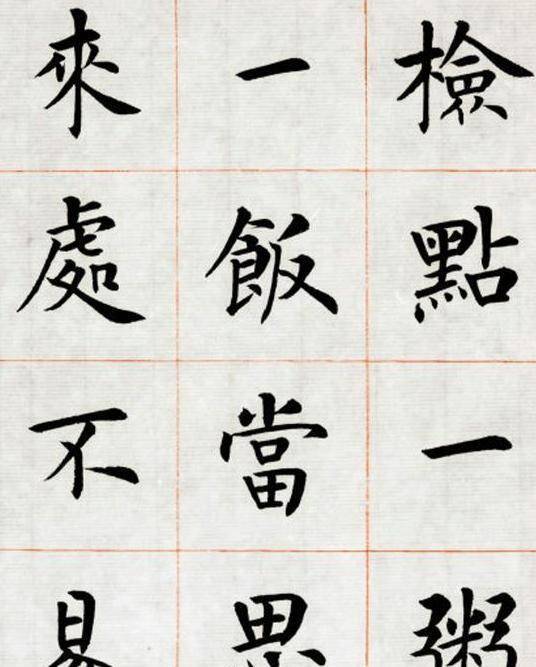 檢點一粥
一飯當思
來處不易